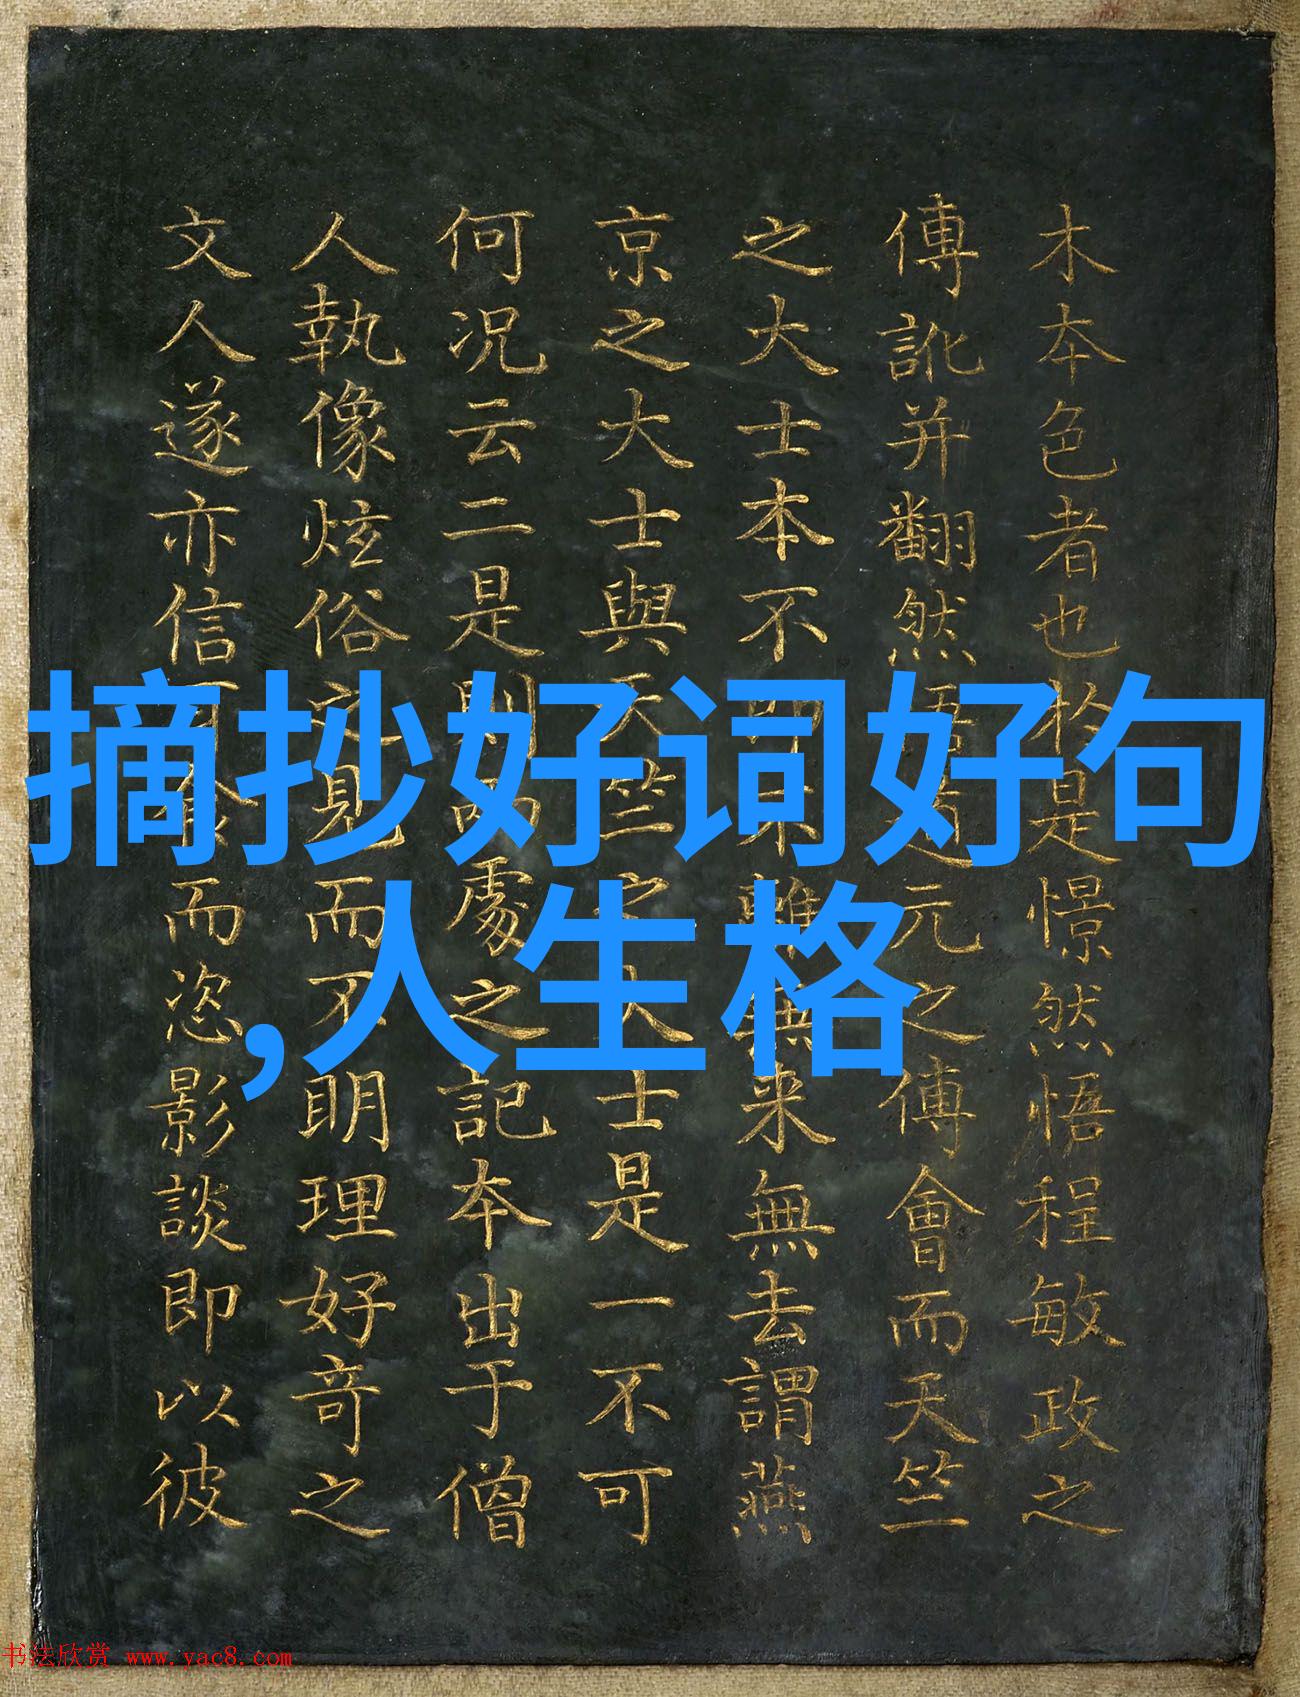 木夲色者也於是憬然悟程敏政之
傅訛并翻然悟元之傅會而天竺
之大士本不即不離無来無去謂燕
京之大士與天竺之大士是一不可
何况云二是則兩處之記夲出于僧
人執像炫俗之見而不明理好奇之
文人遂亦信耳食而恣影談即以彼
摘抄好词好句
,人生格
书法欣赏 www.yac8.com